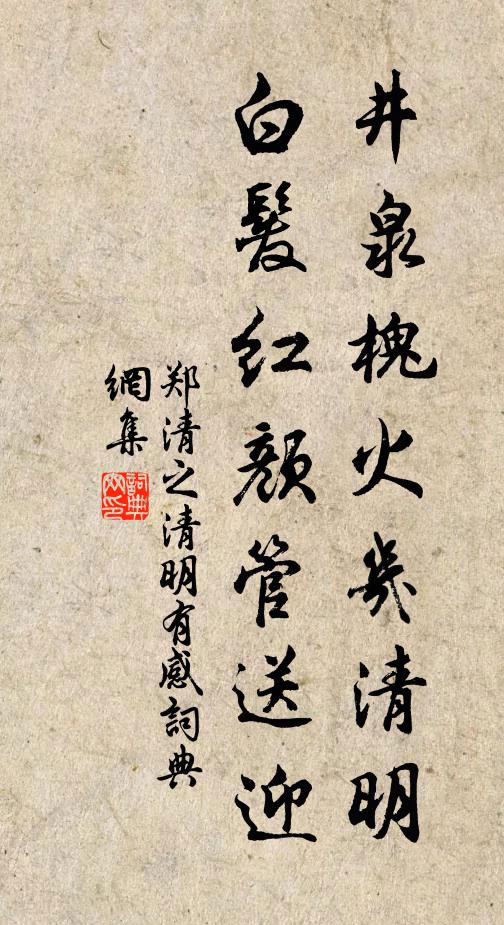 井泉槐火幾清明
白髮红顏管送迎
郑清之清明有感詞典
網集
詞典
网印